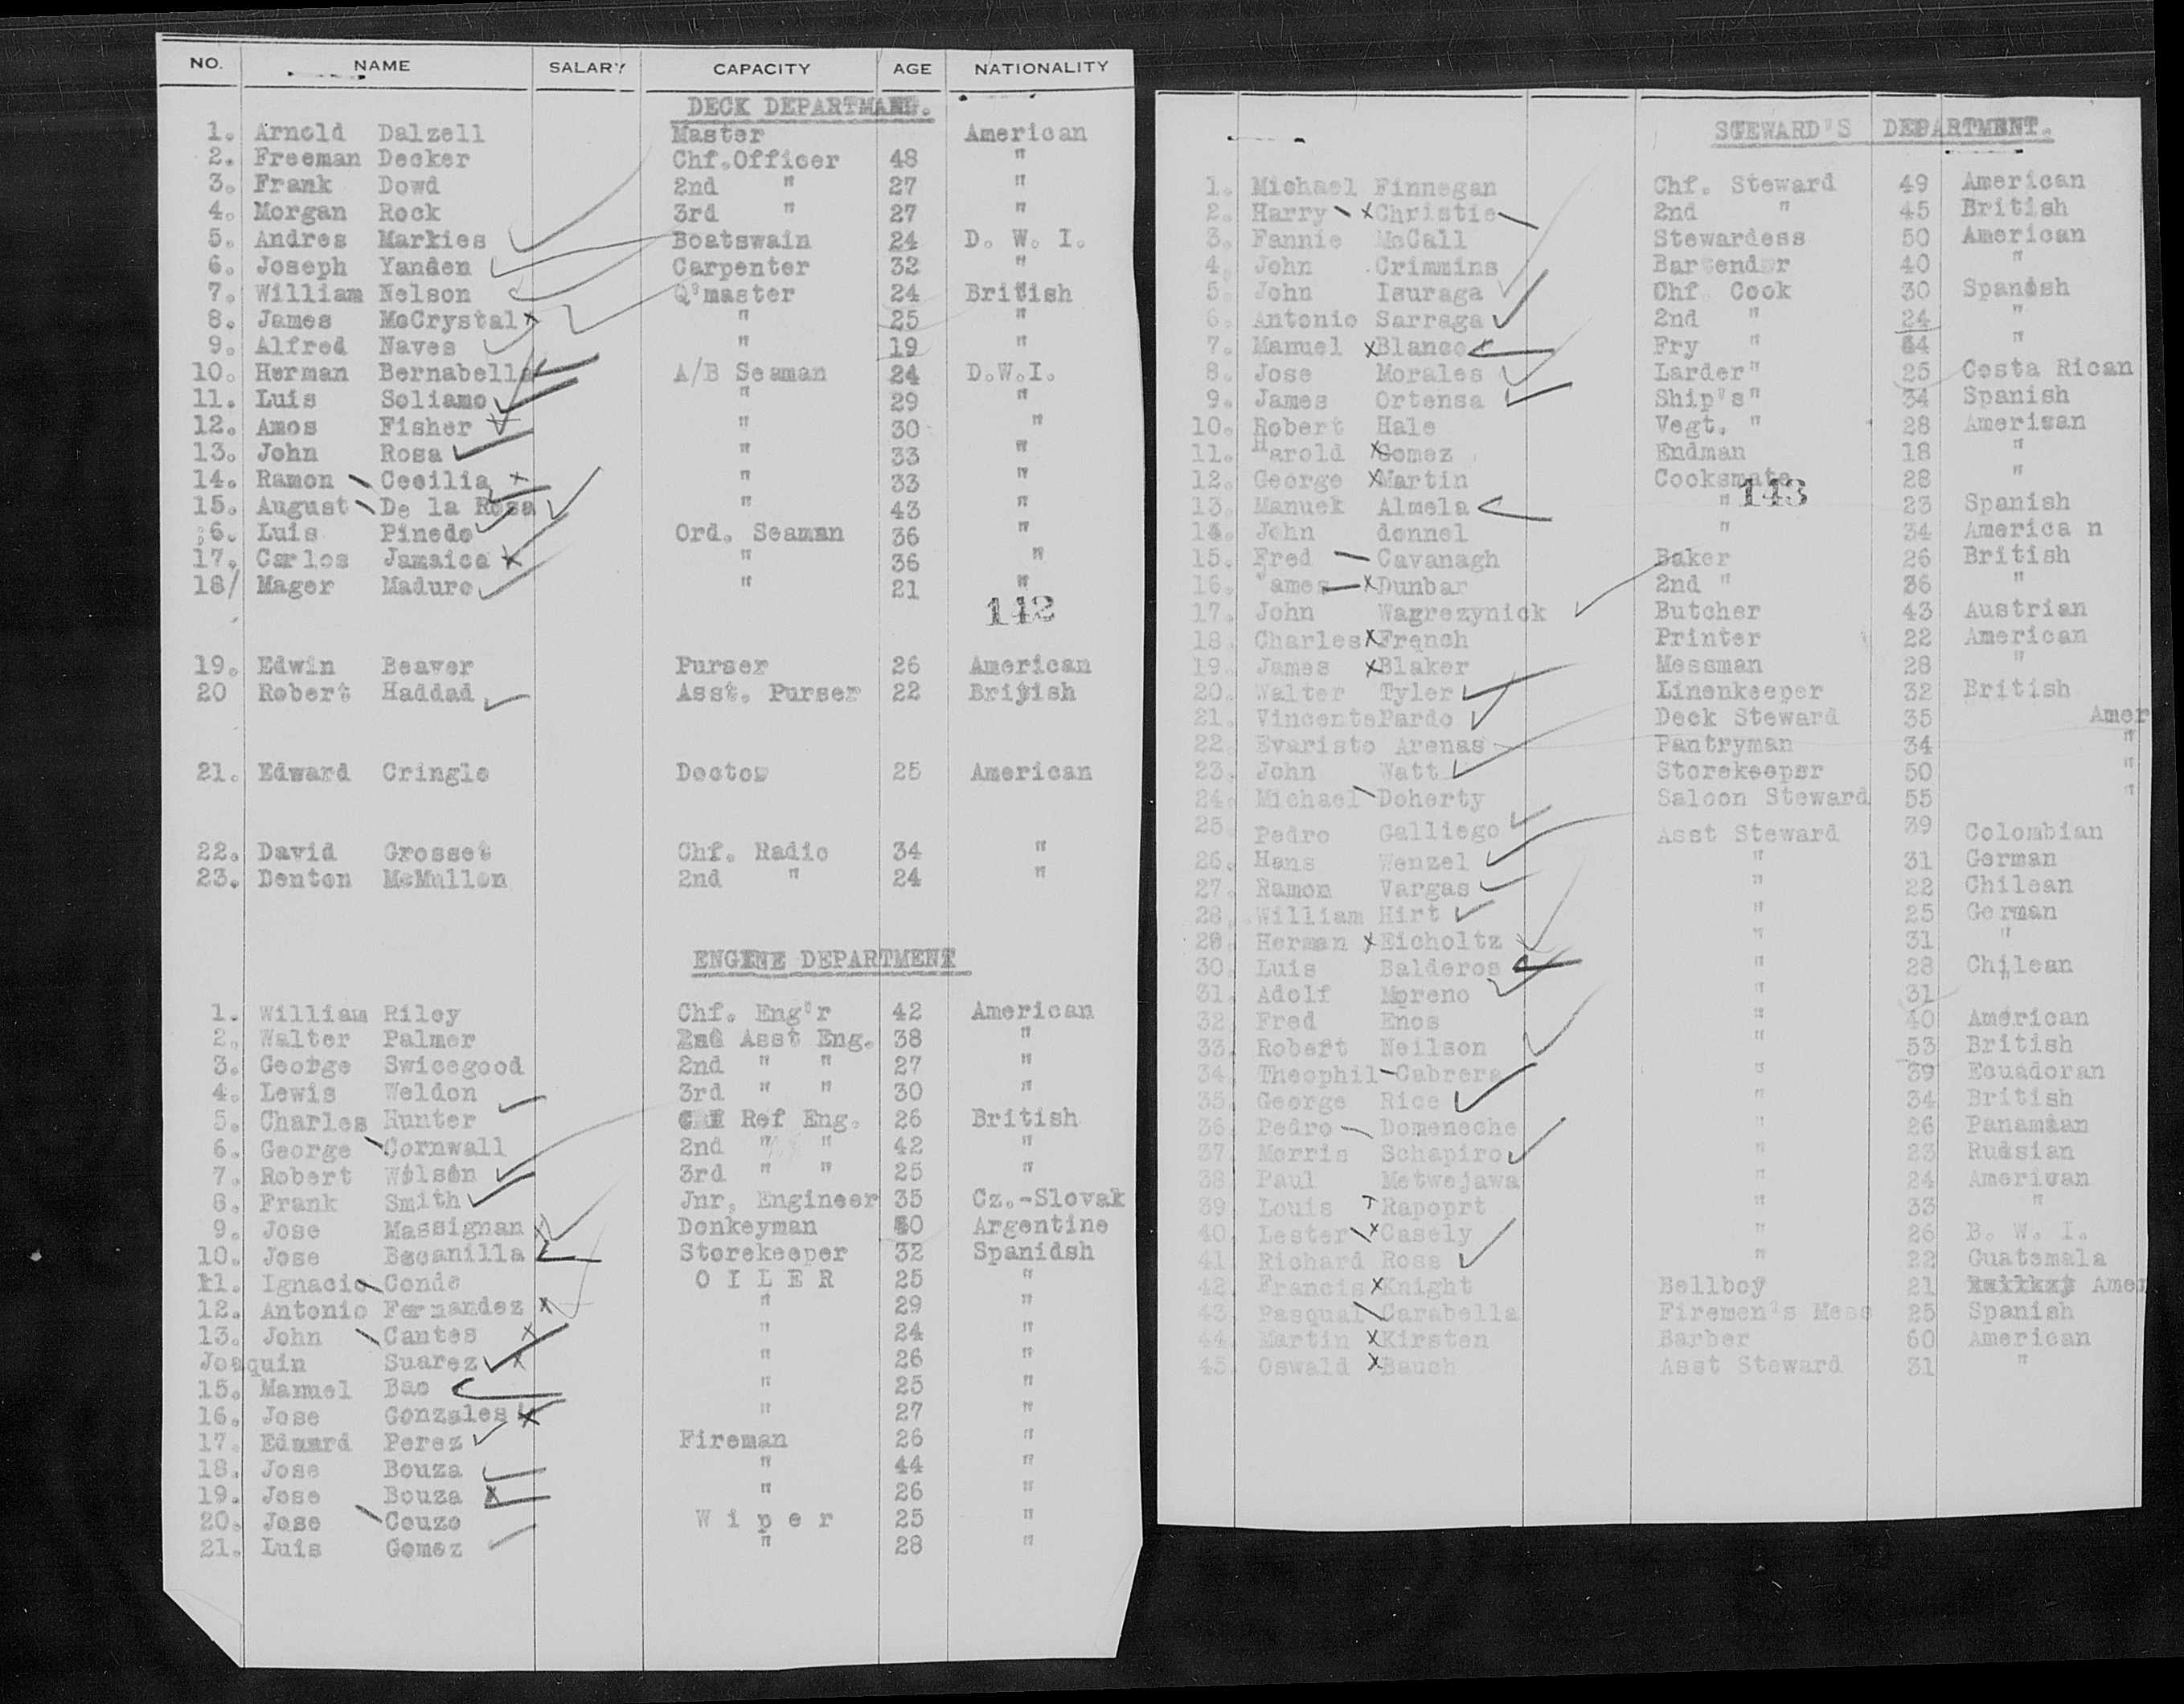 NO. NAME SALARY CAPACITY AGE NATIONALITY
DECK DEPARTMENT.
1. Arnold Dalzell Master American
2. Freeman Decker Chf.Officer 48 "
3. Frank Dowd 2nd " 27 "
4. Morgan Rock 3rd " 27 "
5. Andres Markies Boatswain 24 D. W. I.
6. Joseph Yanden Carpenter 32 "
7. William Nelson Q'master 24 British
8. James McCrystal " 25 "
9. Alfred Naves " 19 "
10. Herman Bernabella A/B Seaman 24 D.W.I.
11. Luis Soliamo " 29 "
12. Amos Fisher " 30 "
13. John Rosa " 33 "
14. Ramon Cecilia " 33 "
15. August De la Rosa " 43 "
;6. Luis Pinedo Ord. Seaman 36 "
17. Carlos Jamaica " 36 "
18/ Mager Maduro " 21 "
142
19. Edwin Beaver Purser 26 American
20 Robert Haddad Asst. Purser 22 British
21. Edward Cringle Doctor 25 American
22. David Grosset Chf. Radio 34 "
23. Denton McMullen 2nd " 24 "
ENGINE DEPARTMENT
1. William Riley Chf. Eng'r 42 American
2. Walter Palmer Asst Eng. 38 "
3. George Swicegood 2nd " " 27 "
4. Lewis Weldon 3rd " " 30 "
5. Charles Hunter Ref Eng. 26 British
6. George Cornwall 2nd " " 42 "
7. Robert Wilson 3rd " " 25 "
8. Frank Smith Jnr. Engineer 35 Cz.-Slovak
9. Jose Massignan Donkeyman 40 Argentine
10. Jose Bacanilla Storekeeper 32 Spanidsh
11. Ignacio Conde O I L E R 25 "
12. Antonio Fernandez " 29 "
13. John Cantes " 24 "
Joaquin Suarez " 26 "
15. Manuel Bao " 25 "
16. Jose Gonzales " 27 "
17. Eduard Perez Fireman 26 "
18. Jose Bouza " 44 "
19. Jose Bouza " 26 "
20. Jose Couzo W i p e r 25 "
21. Luis Gomez " 28 "
STEWARD'S DEPARTMENT.
1. Michael Finnegan Chf. Steward 49 American
2. Harry Christie 2nd " 45 British
3. Fannie McCall Stewardess 50 American
4. John Crimmins Bartender 40 "
5. John Isuraga Chf. Cook 30 Spanish
6. Antonio Sarraga 2nd " 24 "
7. Manuel Blanco Fry " 44 "
8. Jose Morales Larder" 25 Costa Rican
9. James Ortensa Ship's" 34 Spanish
10. Robert Hale Vegt. " 28 American
11. Harold Gomez Endman 18 "
12. George Martin Cooksmate 28 "
143
13. Manuek Almela " 23 Spanish
14. John donnel " 34 America n
15. Fred Cavanagh Baker 26 British
16. James Dunbar 2nd " 36 "
17. John Wagrezynick Butcher 43 Austrian
18. Charles French Printer 22 American
19. James Blaker Messman 28 "
20. Walter Tyler Linenkeeper 32 British
21. VincentePardo Deck Steward 35 Amer
22. Evaristo Arenas Pantryman 34 "
23. John Watt Storekeeper 50 "
24. Michael Doherty Saloon Steward 55 "
25. Pedro Galliego Asst Steward 39 Colombian
26. Hans Wenzel " 31 German
27. Ramon Vargas " 22 Chilean
28. William Hirt " 25 German
29. Herman Eicholtz " 31 "
30. Luis Balderos " 28 Chilean
31. Adolf Moreno " 31 "
32. Fred Enos " 40 American
33. Robert Neilson " 53 British
34. Theophil Cabrera " 39 Ecuadoran
35. George Rice " 34 British
36. Pedro Domeneche " 26 Panamaan
37. Morris Schapiro " 23 Russian
38. Paul Metwejawa " 24 American
39. Louis Rapoprt " 33 "
40. Lester Casely " 26 B. W. I.
41. Richard Ross " 22 Guatemala
42. Francis Knight Bellboy 21 Amer
43. Pasqual Carabella Firemen's Mess 25 Spanish
44. Martin Kirsten Barber 60 American
45. Oswald Bauch Asst Steward 31 "